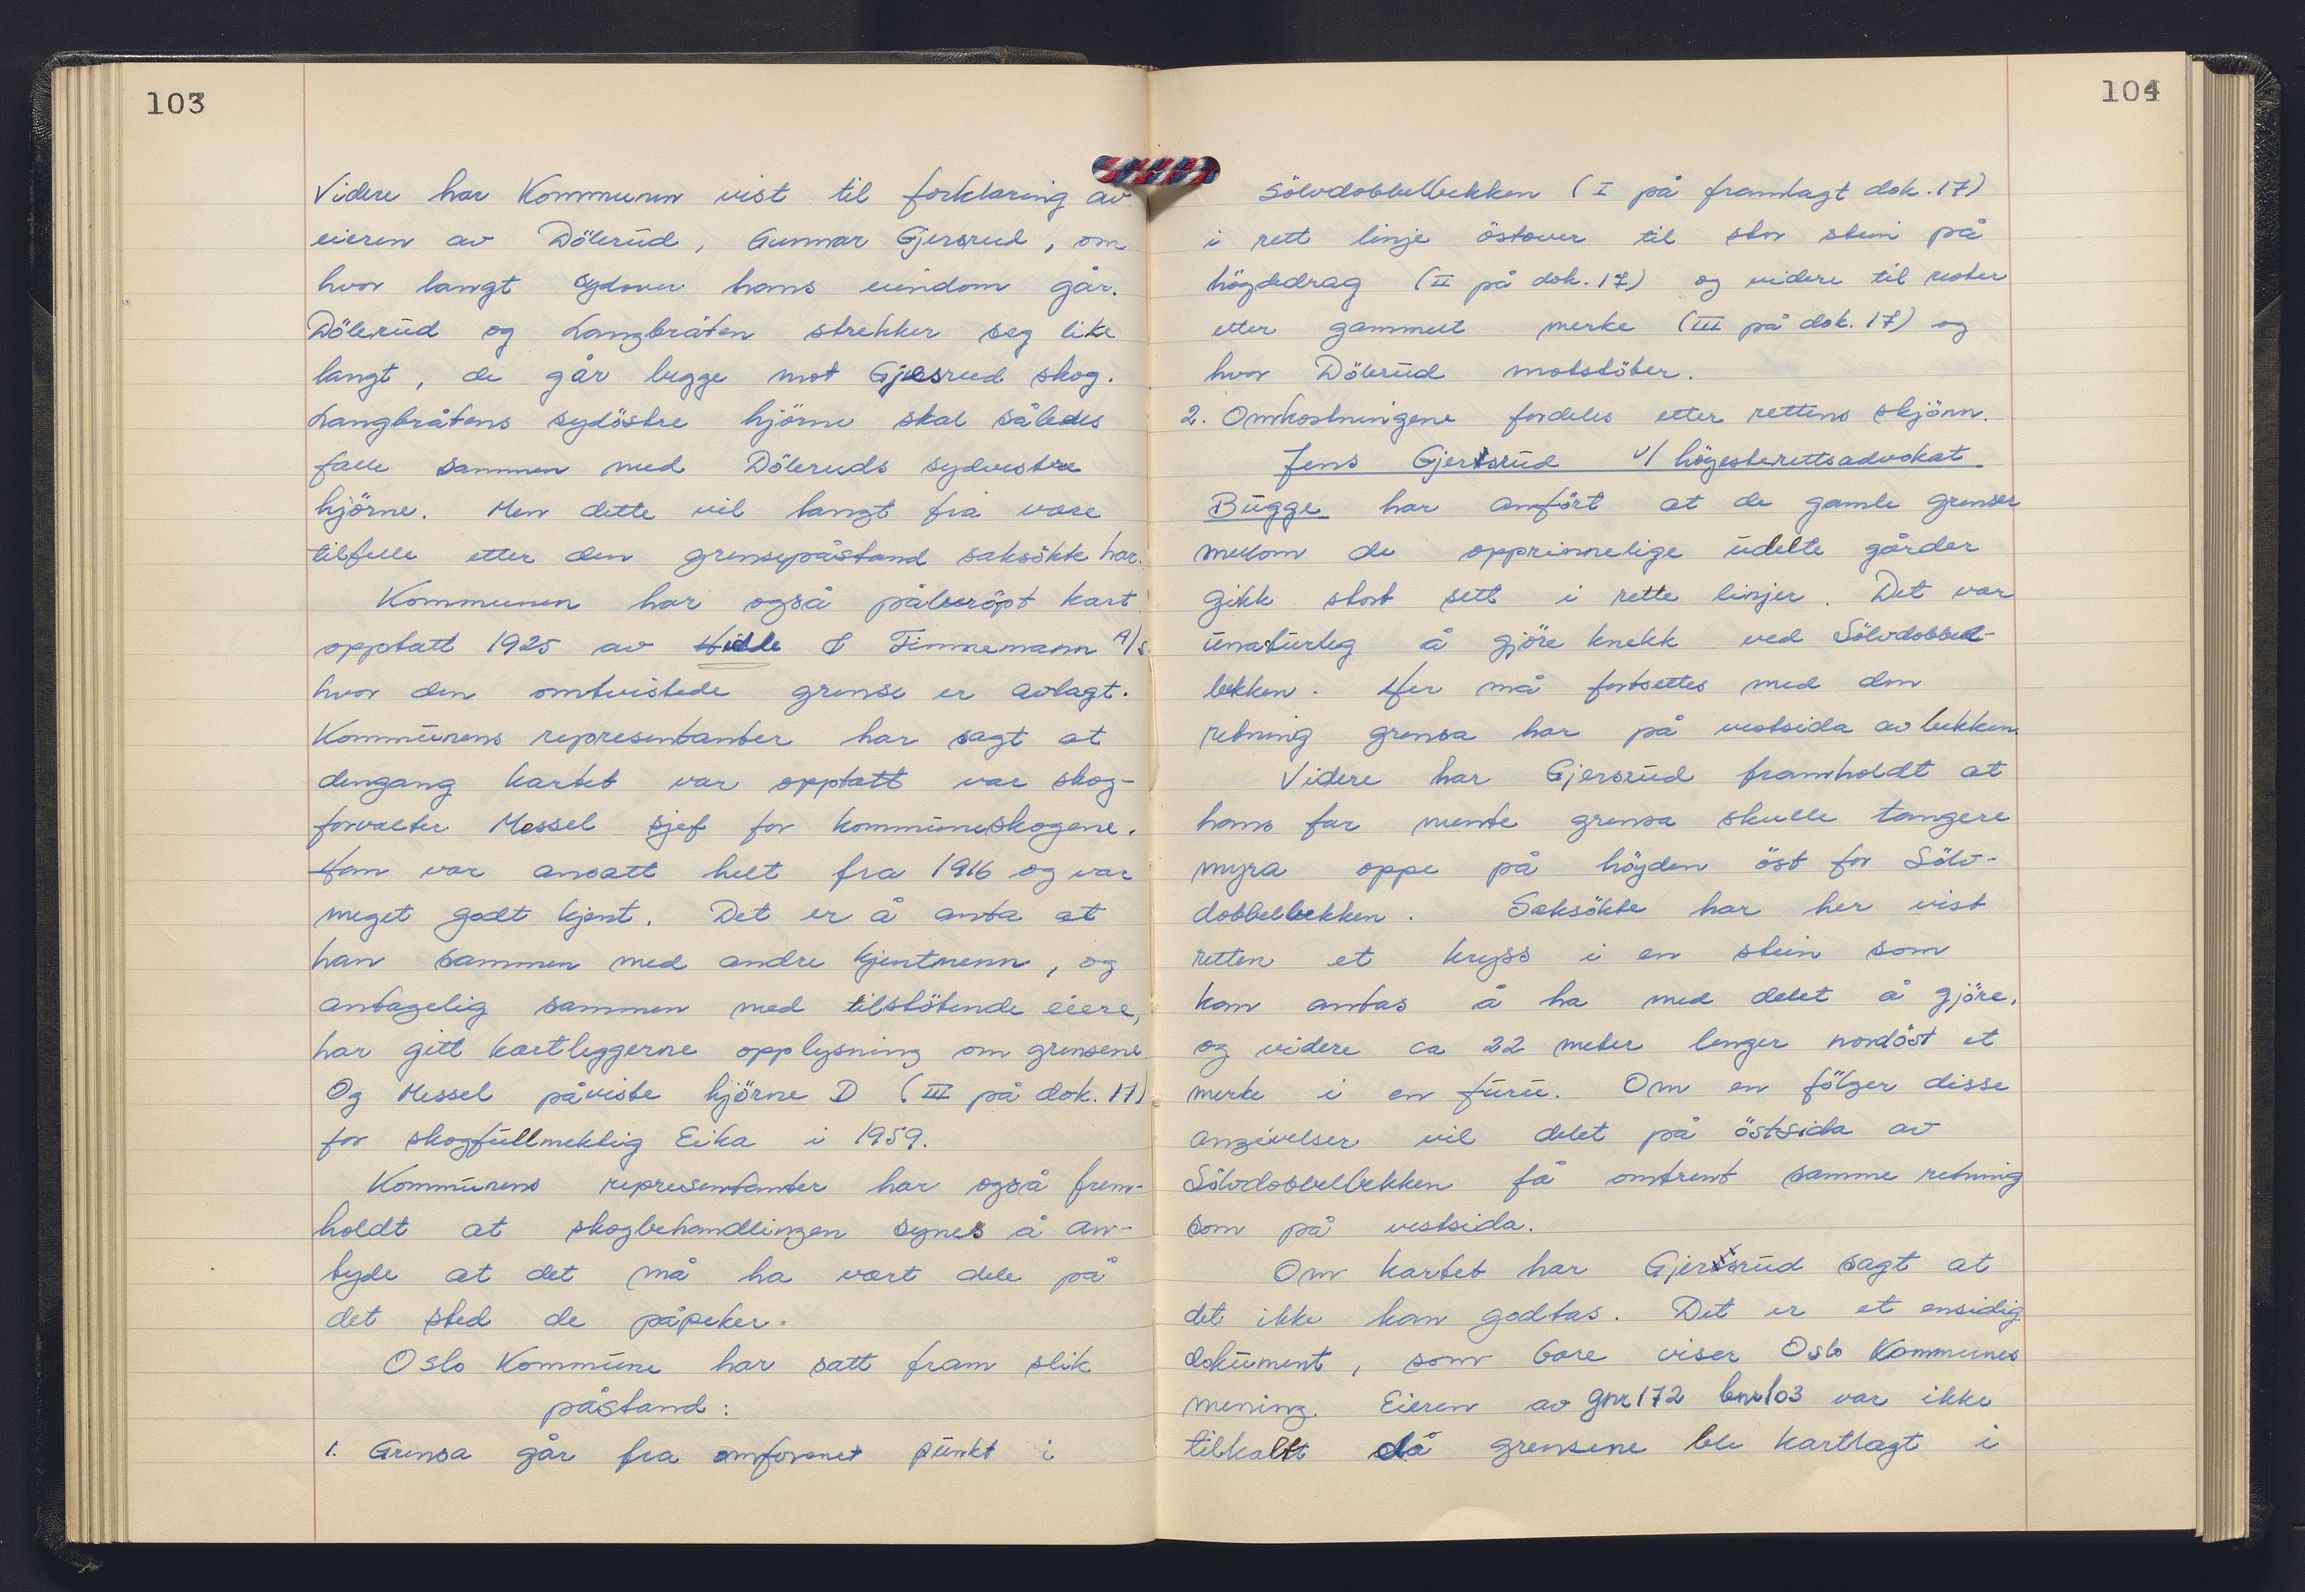 103
Videre har Kommunen vist til forklaring av
eieren av Dölerud, Gunnar Gjersrud, om
hvor langt sydover hans eiendom går.
Dölerud og Langbråten strekker seg like
langt, de går begge mot Gjersrud skog.
Langbråtens sydöstre hjörne skal således
falle sammen med Döleruds sydvestre
hjörne. Men dette vil langt fra være
tilfelle etter den grensepåstand saksökte har.
Kommunen har også påberöpt kart
opptatt 1925 av Wille & Finnemann A/S
hvor den omtvistede grense er avlagt.
Kommunens representanter har sagt at
dengang kartet var opptatt var skog-
forvalter Messel sjef for kommuneskogene.
Han var ansatt helt fra 1916 og var
meget godt kjent. Det er å anta at
han sammen med andre kjentmenn, og
antagelig sammen med tilstötende eiere,
har gitt kartleggerne opplysning om grensene.
Og Messel påviste hjörne D (III på dok. 17)
for skogfullmektig Eika i 1959.
Kommunens representanter har også frem-
holdt at skogbehandlingen synes å an-
tyde at det må ha vært dele på
det sted de påpeker.
Oslo Kommune har satt fram slik
påstand:
1. Grensa går fra omforenet punkt i
104
Sölvdobbelbekken (I på framlagt dok. 17)
i rett linje östover til stor stein på
högdedrag (II på dok. 17) og videre til rester
etter gammelt merke (III på dok. 17) og
hvor Dölerud motstöter.
2. Omkostningene fordeles etter rettens skjönn.
Jens Gjersrud v/ höyesterettsadvokat
Bugge har anfört at de gamle grenser
mellom de opprinnelige udelte gårder
gikk stort sett i rette linjer. Det var
unaturleg å gjöre knekk ved Sölvdobbel-
bekken. Her må fortsettes med den
retning grensa har på vestsida av bekken.
Videre har Gjersrud framholdt at
hans far mente grensa skulle tangere
myra oppe på höyden öst for Sölv-
dobbelbekken. Saksökte har her vist
retten et kryss i en stein som
kan antas å ha med delet å gjöre,
og videre ca 22 meter lenger nordöst et
merke i en furu. Om en fölger disse
angivelser vil delet på östsida av
Sölvdobbelbekken få omtrent samme retning
som på vestsida.
Om kartet har Gjersrud sagt at
det ikke kan godtas. Det er et ensidig
dokument, som bare viser Oslo Kommunes
mening. Eieren av gnr 172 bnr 103 var ikke
tilkalt då grensene ble kartlagt i